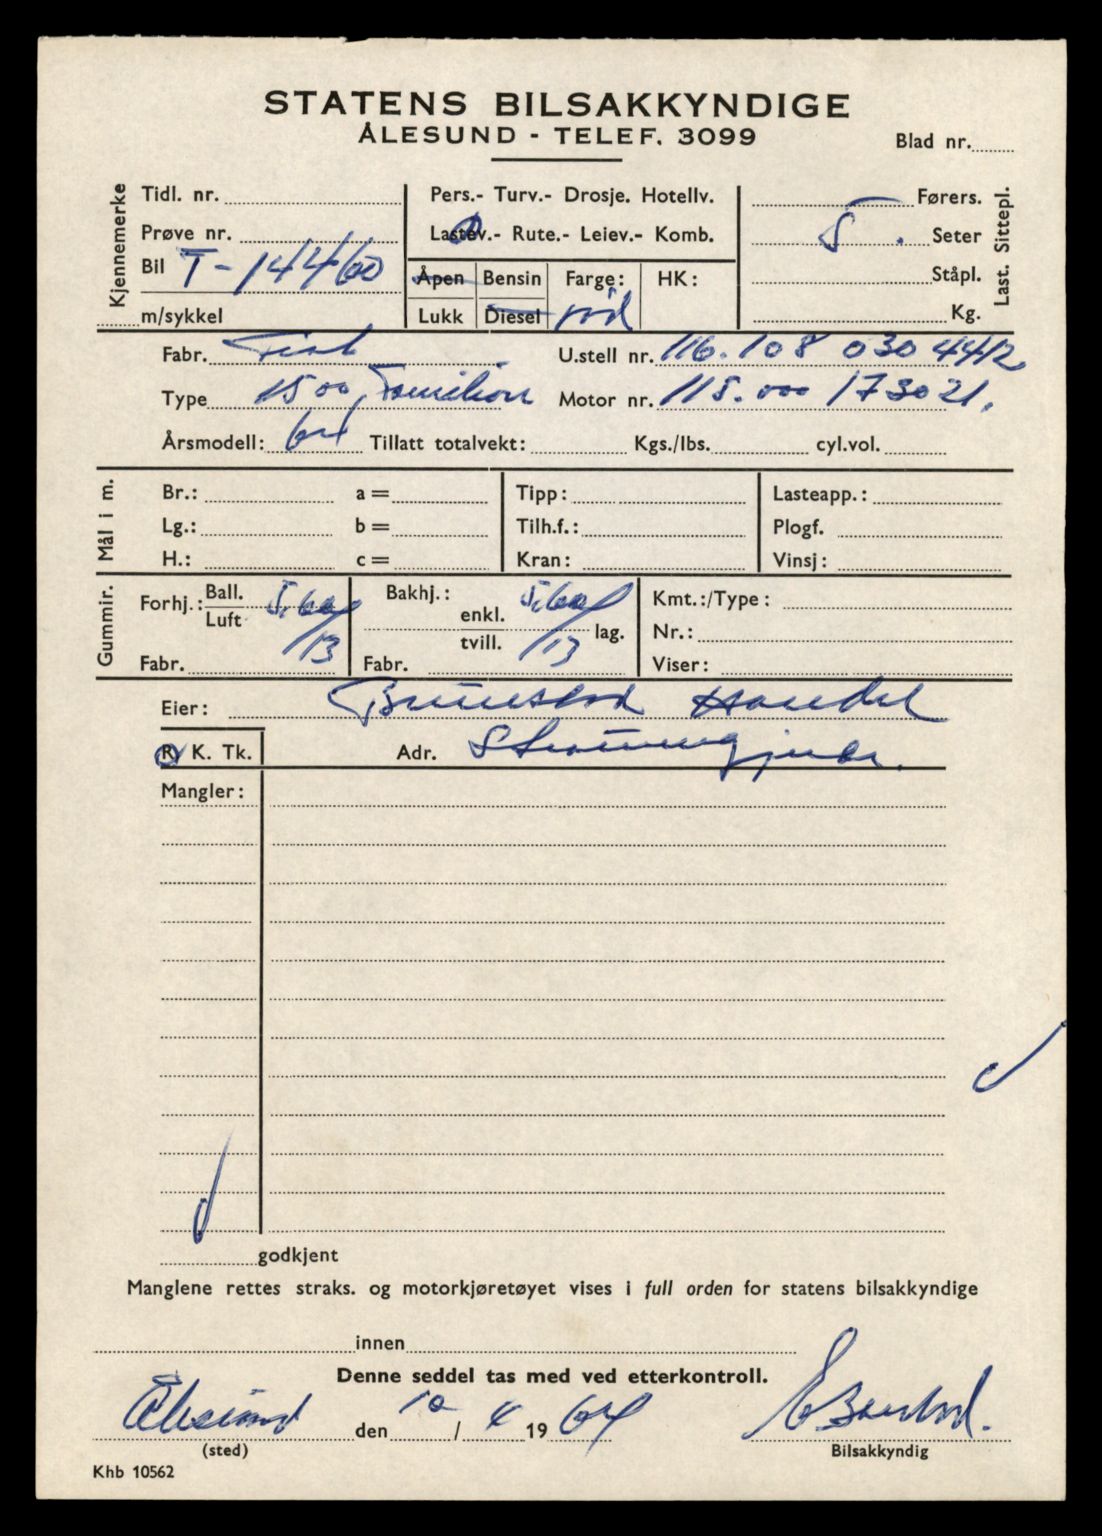 STATENS BILSAKKYNDIGE
ÅLESUND - TELEF. 3099
Blad nr.
Kjennemerke
Tidl. nr.
Prøve nr.
Bil T-14460
m/sykkel
Pers.- Turv.- Drosje. Hotellv.
Lastev.- Rute.- Leiev.- Komb.
Åpen Bensin Farge: HK:
Lukk Diesel rød
Førers.
5. Seter
Ståpl.
Kg.
Last. Sittepl.
Fabr. Fiat U.stell nr. 116.108 030 4412
Type 1500, Familien Motor nr. 115.000 173021.
Årsmodell: 64 Tillatt totalvekt: Kgs./lbs. cyl.vol.
Mål i m.
Br.: a = Tipp: Lasteapp.:
Lg.: b = Tilh.f.: Plogf.
H.: c = Kran: Vinsj:
Gummir.
Forhj.: Ball. Luft 5,60/13
Fabr.
Bakhj.: enkl. tvill. lag. 5,60/13
Fabr.
Kmt.:/Type:
Nr.:
Viser:
Eier: Brunstad Handel
R. K. Tk. Adr. Straumgjerde.
Mangler:
godkjent
Manglene rettes straks. og motorkjøretøyet vises i full orden for statens bilsakkyndige
innen
Denne seddel tas med ved etterkontroll.
Ålesund den 10 / 4 1964
(sted) Bilsakkyndig
Khb 10562